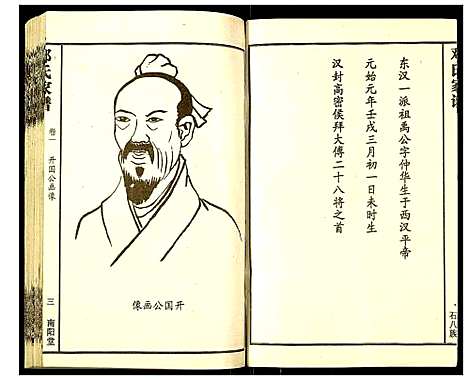 邓氏家谱
东汉一派祖禹公字仲华生于西汉平帝
元始元年壬戌三月初一日未时生
汉封高密侯拜大傅二十八将之首
石八族
邓氏家谱
卷一
开国公画像
三
南阳堂
像画公国开